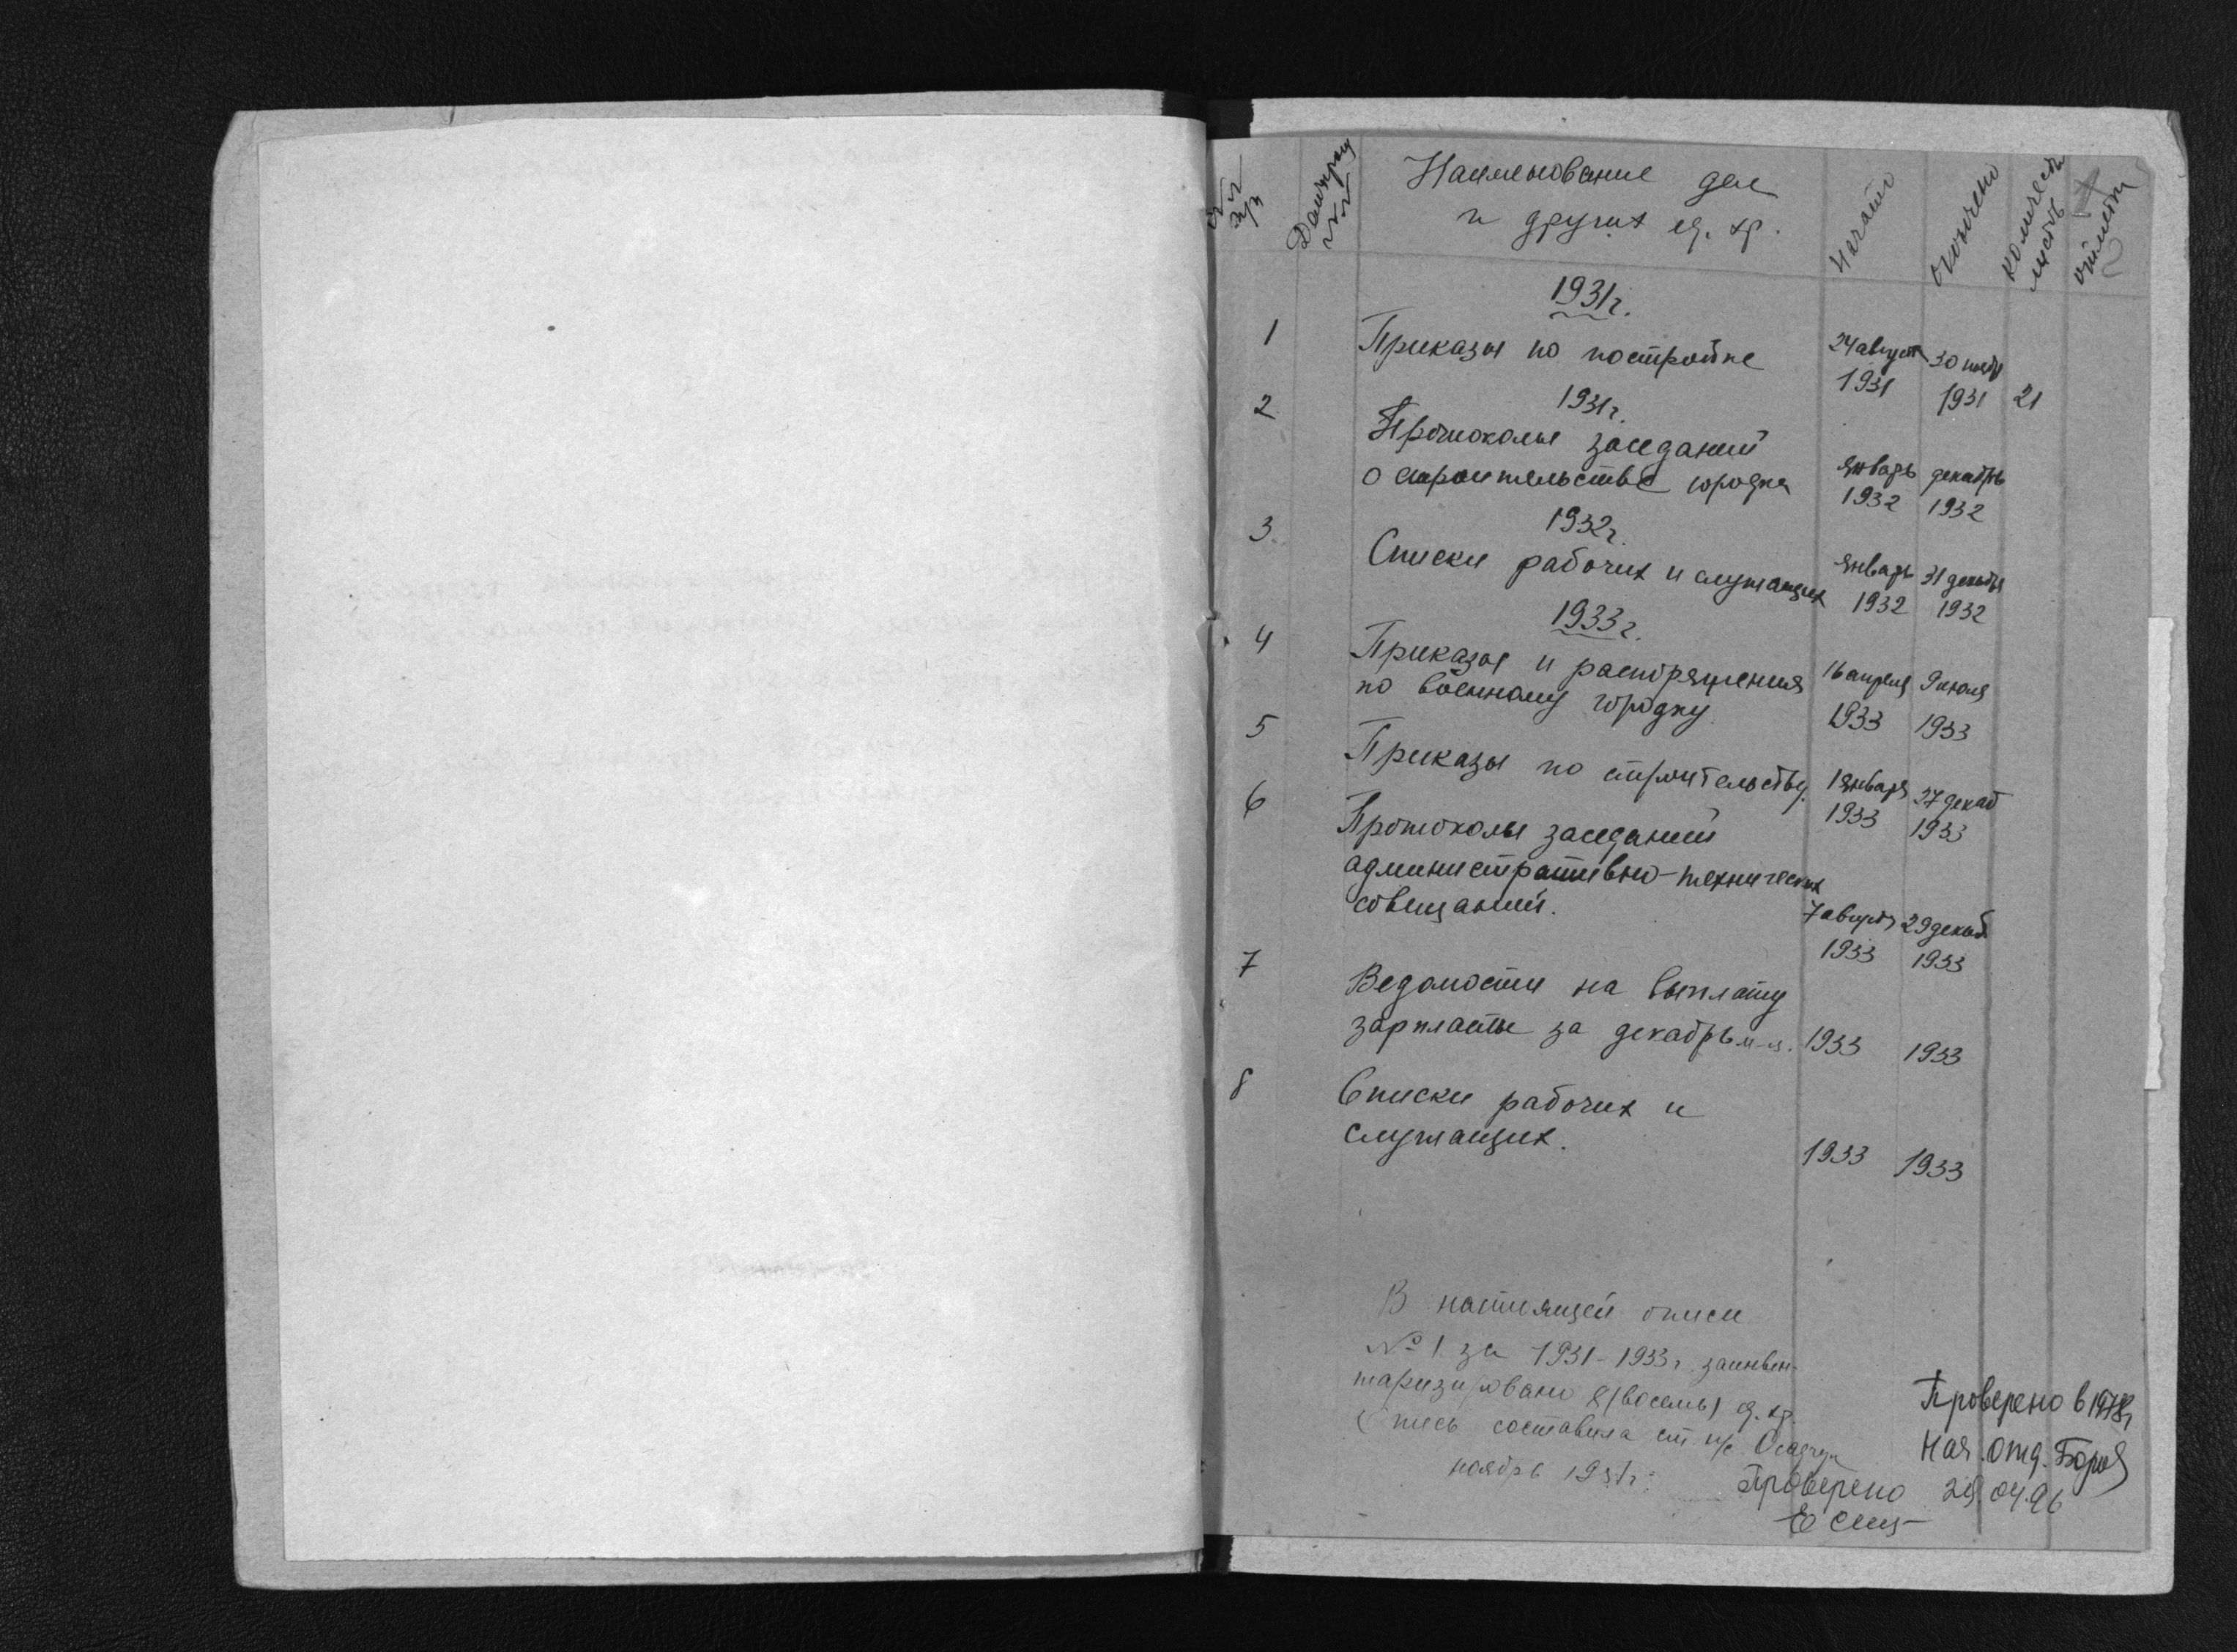 №№ п/п
Наименование дел
и других ед. хр.
Начато
Окончено
Количеств листов
отметк
1931г.
1 Приказы по постройке 24 август 1931 30 нояб 1931 21
1931г.
2 Протоколы заседаний
о строительстве городка январь 1932 декабрь 1932
1932г.
3 Списки рабочих и служащих январь 1932 31 декабря 1932
1933г.
4 Приказы и распоряжения
по военному городку 16 апреля 1933 9 июля 1933
5 Приказы по строительству 1 января 1933 27 декаб 1933
6 Протоколы заседаний
административно-технических
совещаний. 7 август 1933 29 декаб 1933
7 Ведомости на выплату
зарплаты за декабрь м-ц. 1933 1933
8 Списки рабочих и
служащих. 1933 1933
В настоящей описи
№ 1 за 1931-1933г заинвен-
таризировано 8 (восемь) ед. хр.
Опись составила ст. н/с
ноябрь
Проверено в 1978г
Нач. отд.
Проверено 29.04.96